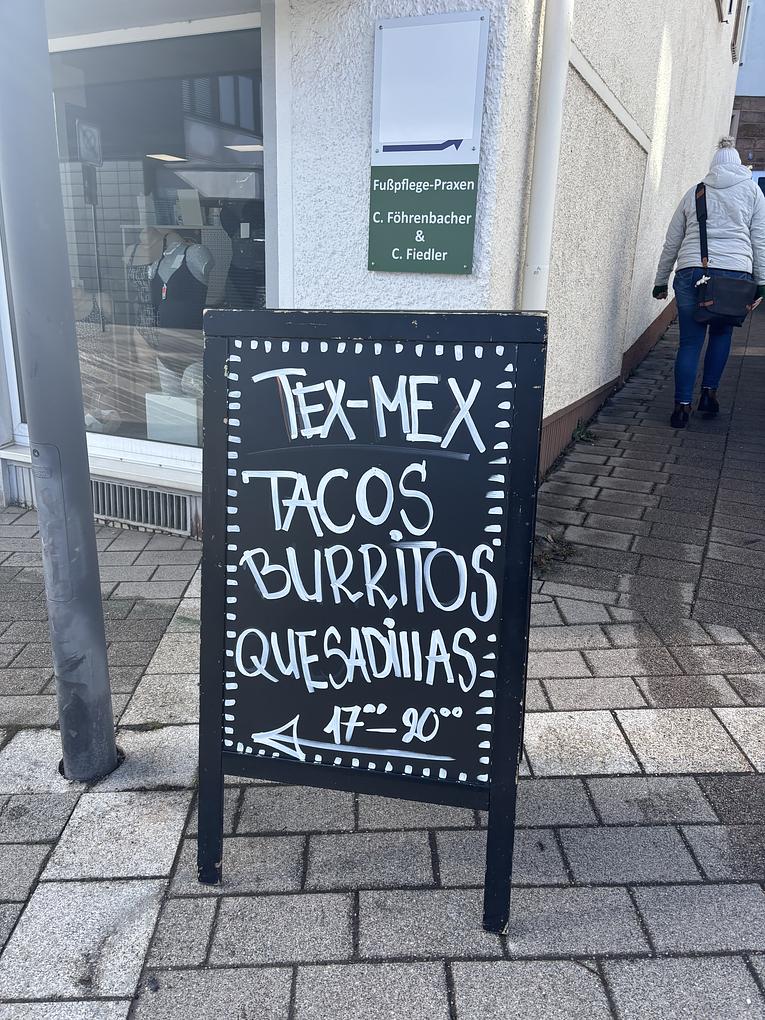 Fußpflege-Praxen
C. Föhrenbacher
&
C. Fiedler
TEX-MEX
TACOS
BURRiTOS
QUESADillAS
17°° – 20°°